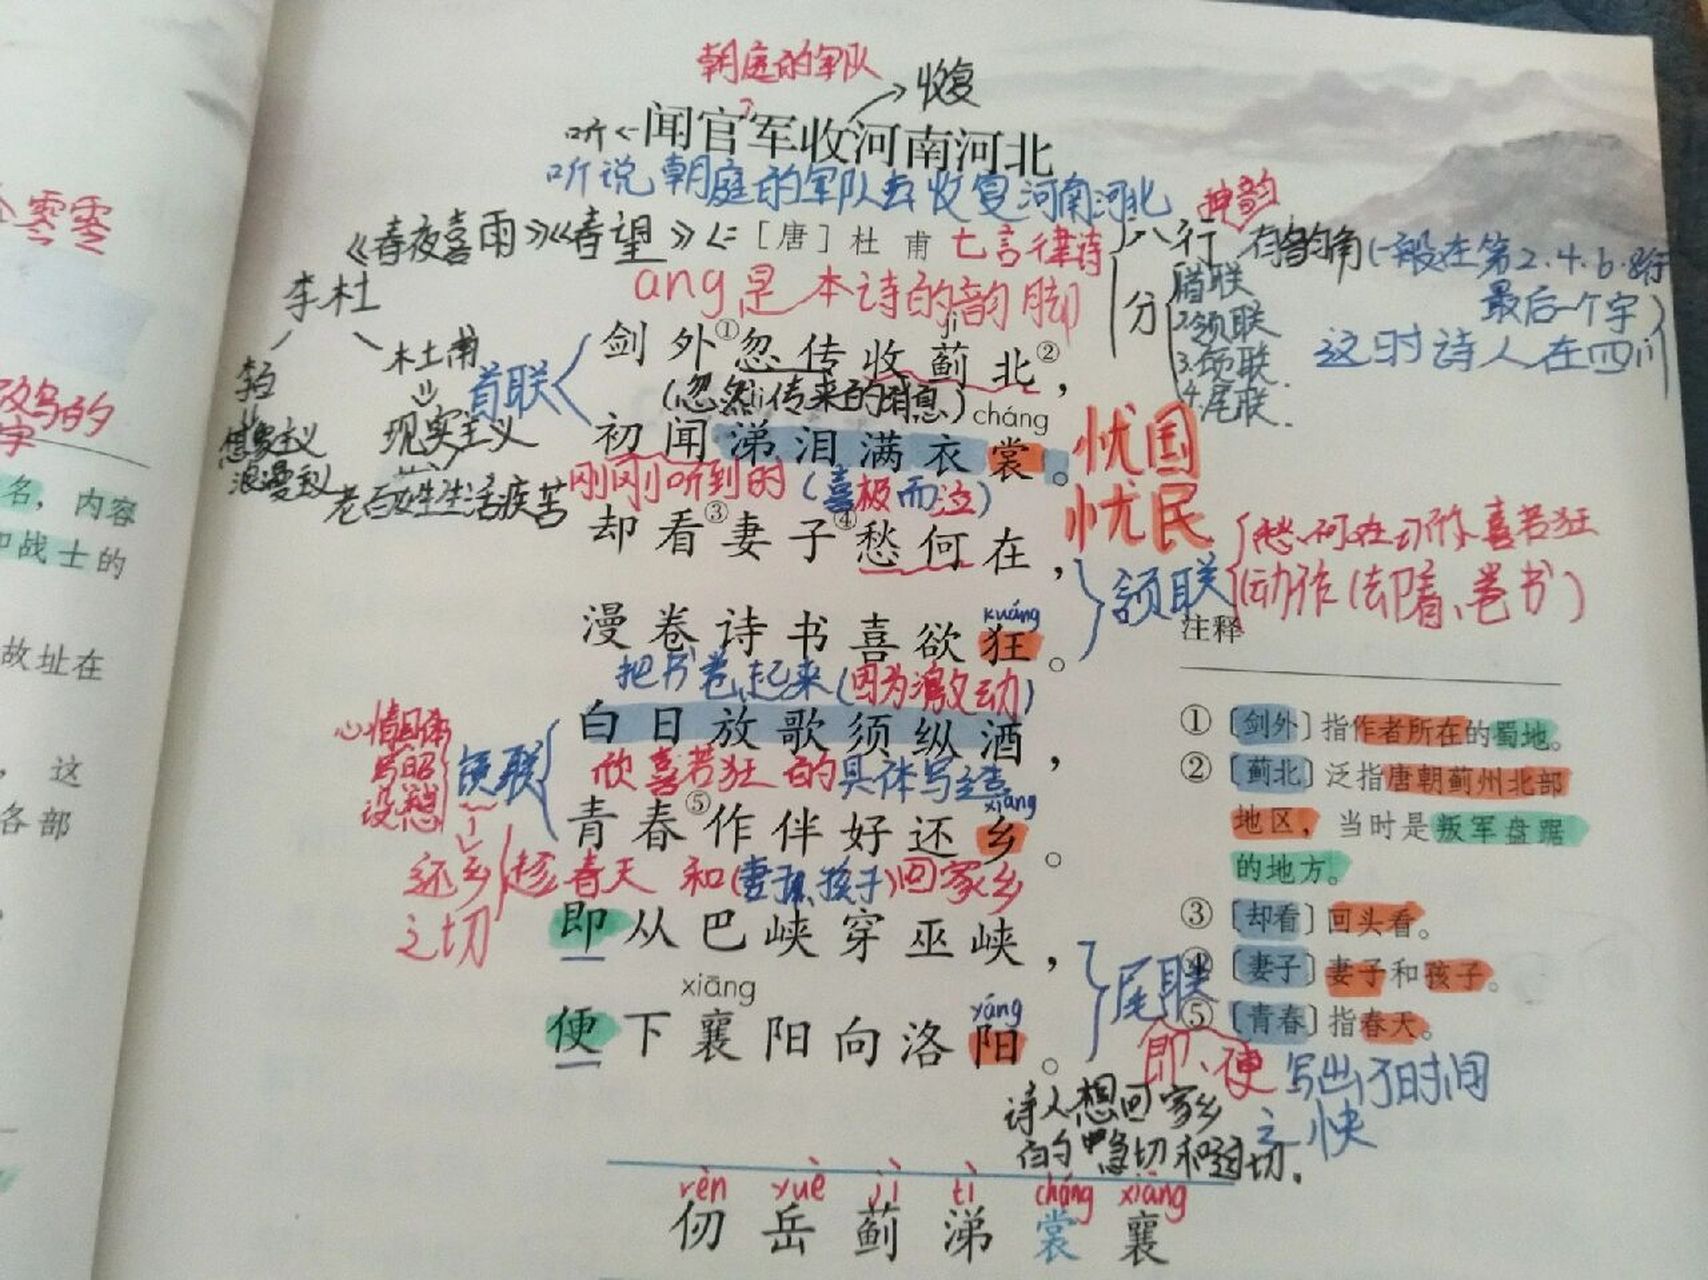 朝庭的军队
收复
听
闻官军收河南河北
听说朝庭的军队去收复河南河北
神韵
《春夜喜雨》《春望》
[唐]杜甫
七言律诗
八行
有韵角(一般在第2.4.6.8行
最后一个字)
李杜
ang是本诗的韵脚
分
首联
2.颔联
3.颈联
4.尾联.
这时诗人在四川
李白
杜甫
想象主义
浪漫主义
现实主义
老百姓生活疾苦
首联
jì
剑外①忽传收蓟北②,
(忽然传来的消息)
cháng
初闻涕泪满衣裳。
忧国
忧民
刚刚听到的(喜极而泣)
却看③妻子④愁何在,
颔联
愁何在
喜若狂
动作(却看、卷书)
kuáng
漫卷诗书喜欲狂。
把书卷起来(因为激动)
白日放歌须纵酒,
欣喜若狂的具体写
颈联
设想
xiāng
青春⑤作伴好还乡。
还乡
之切
趁春天和(妻子、孩子)回家乡
即从巴峡穿巫峡,
尾联
xiāng
yáng
便下襄阳向洛阳。
即、便写出了时间
之快
诗人想回家乡
的急切和迫切.
注释
①[剑外]指作者所在的蜀地。
②[蓟北]泛指唐朝蓟州北部
地区,当时是叛军盘踞
的地方。
③[却看]回头看。
④[妻子]妻子和孩子。
⑤[青春]指春天。
rèn yuè jì tì cháng xiāng
仞岳蓟涕裳襄
零零
的
字
名,内容
战士的
故址在
,这
各部